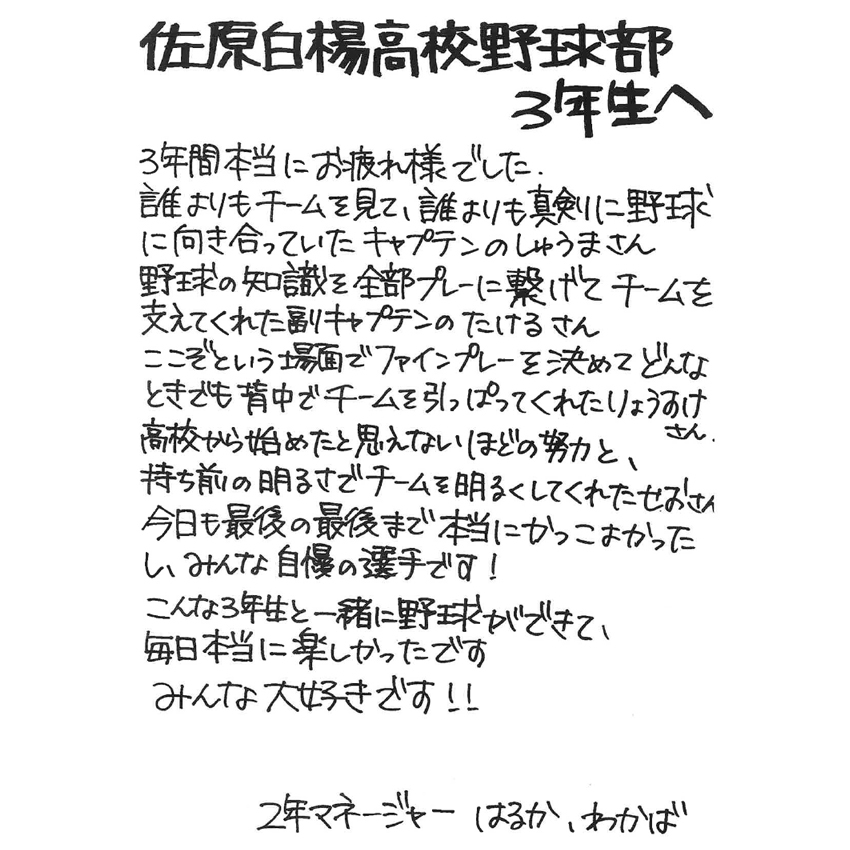 佐原白楊高校野球部
3年生へ
3年間本当にお疲れ様でした.
誰よりもチームを見て、誰よりも真剣に野球
に向き合っていたキャプテンのしゅうまさん
野球の知識を全部プレーに繋げてチームを
支えてくれた副キャプテンのたけるさん
ここぞという場面でファインプレーを決めてどんな
ときでも背中でチームを引っぱってくれたりょうすけ
さん.
高校から始めたと思えないほどの努力と、
持ち前の明るさでチームを明るくしてくれたせおさん
今日も最後の最後まで本当にかっこよかった
し、みんな自慢の選手です!
こんな3年生と一緒に野球ができて、
毎日本当に楽しかったです
みんな大好きです!!
2年マネージャー はるか、わかば